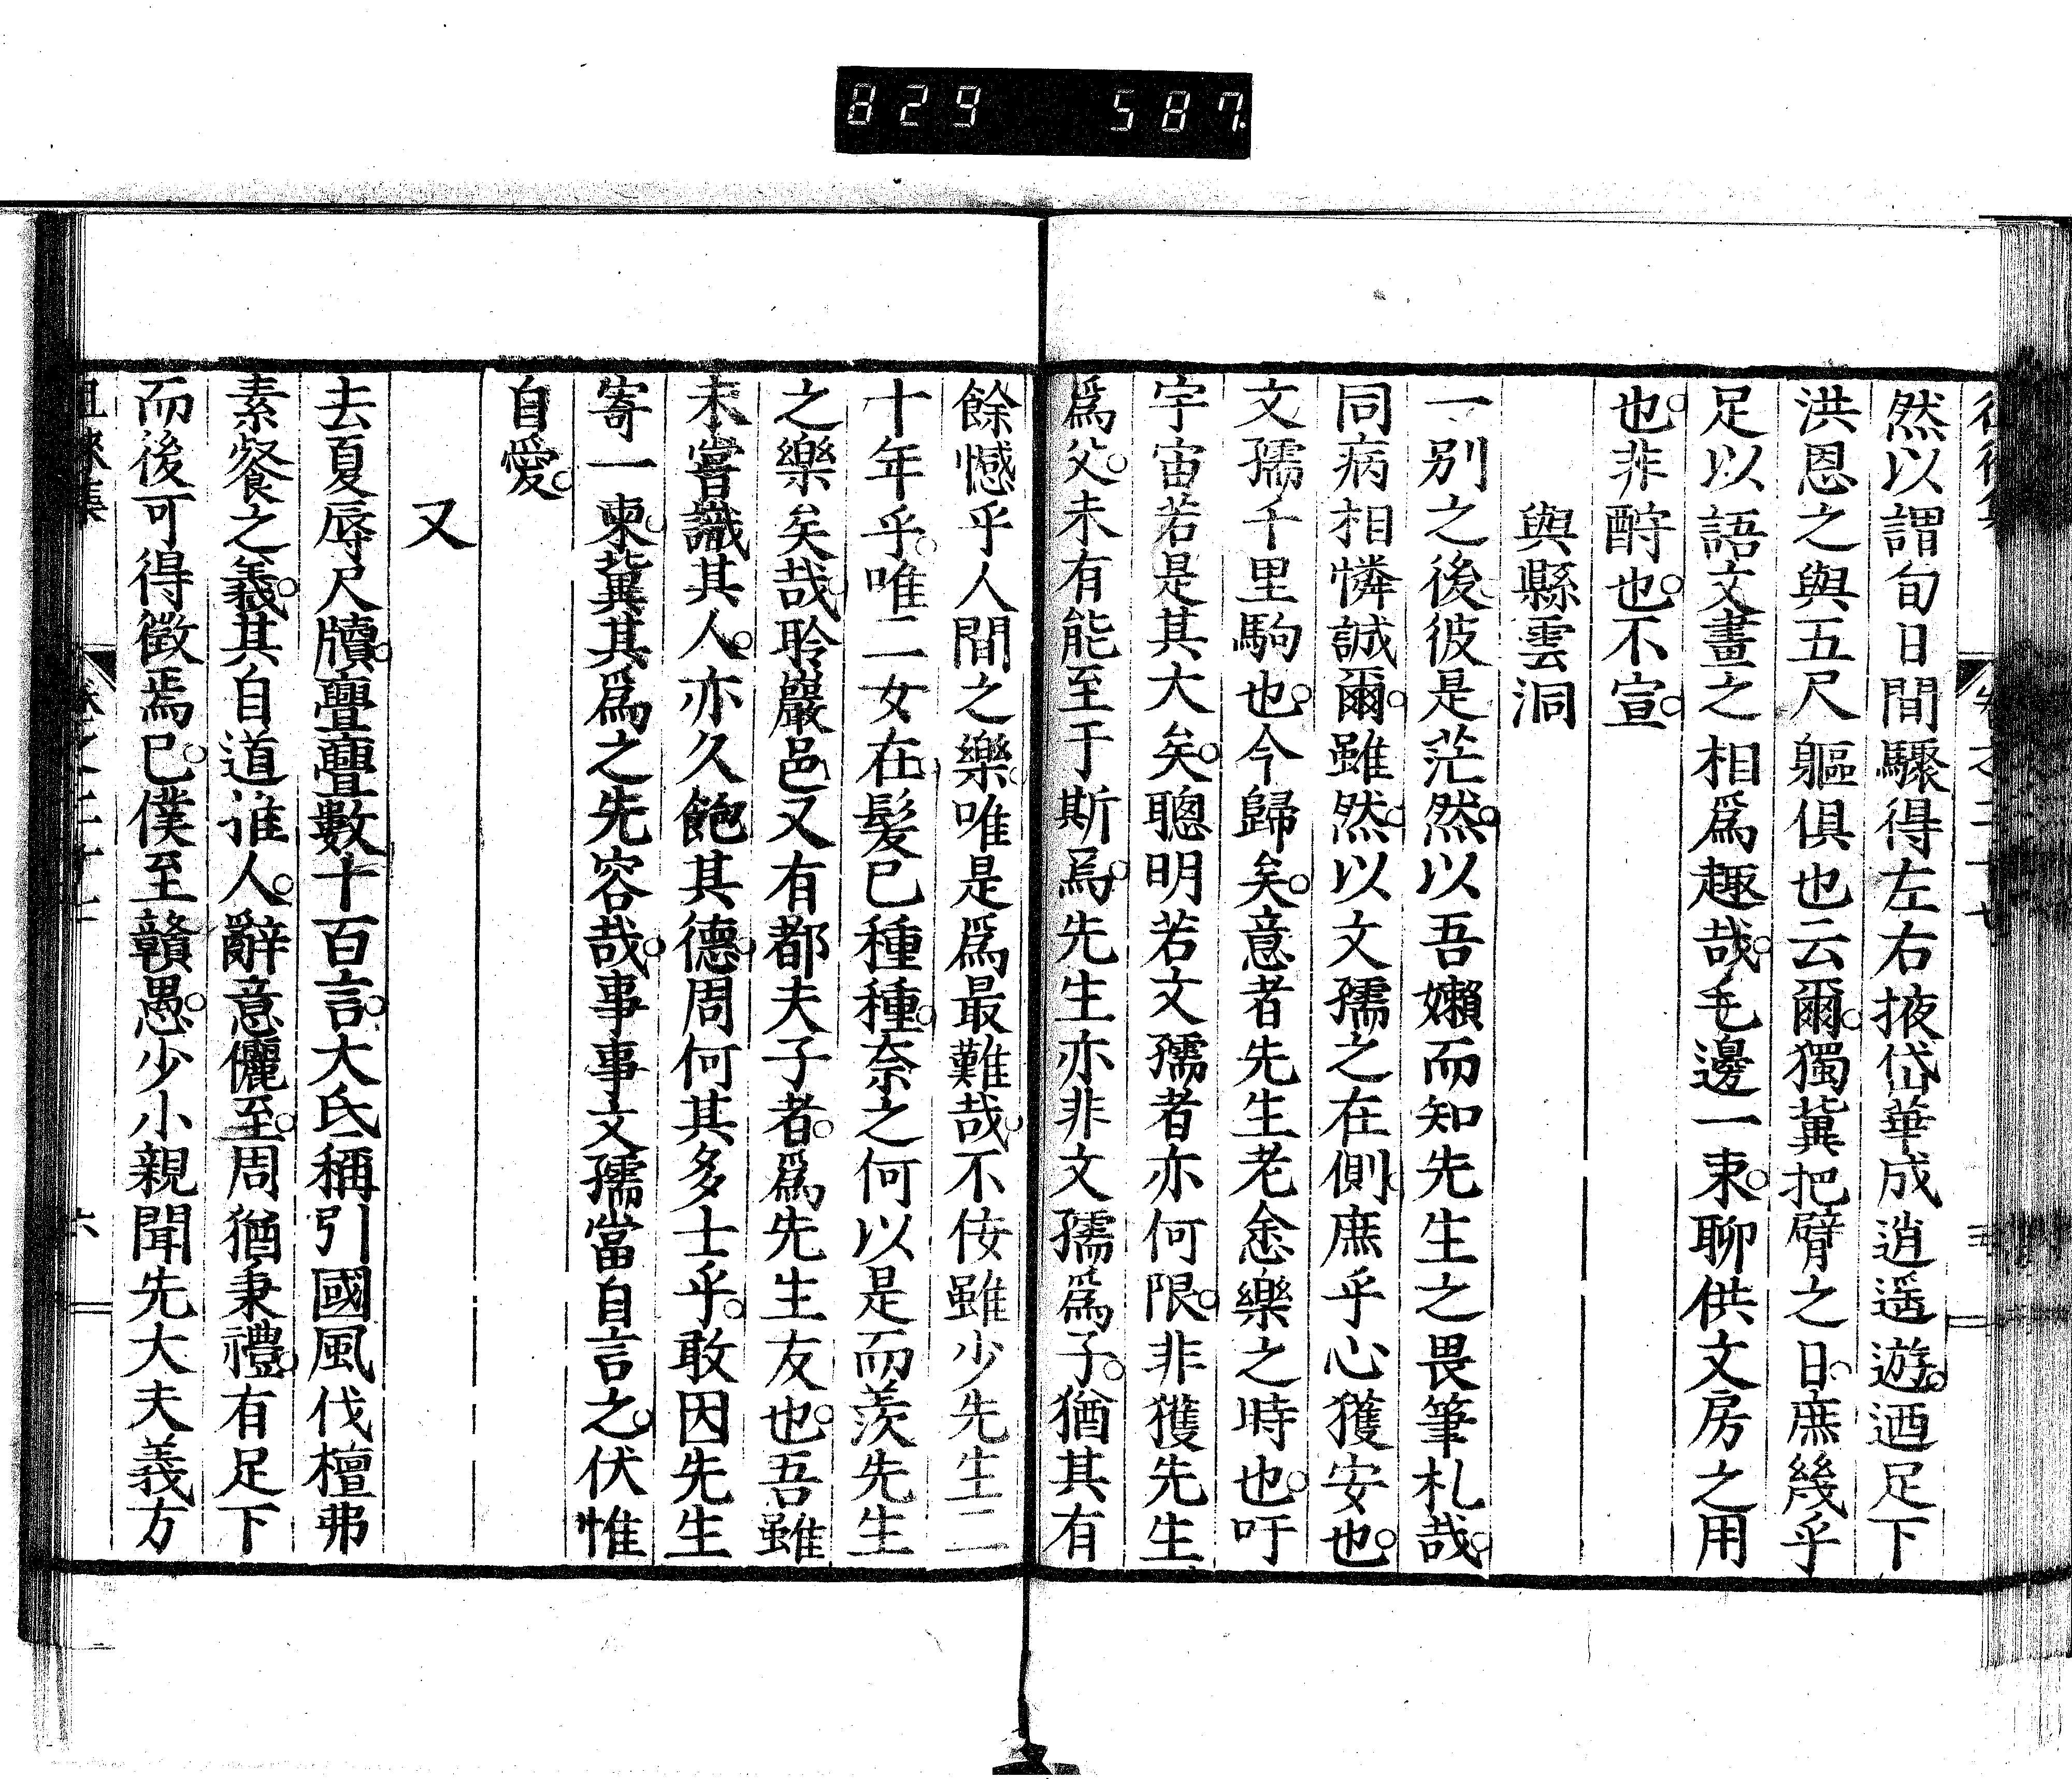 829 587
然以謂旬日間驟得左右掖岱華成逍遥遊。迺足下
洪恩之與五尺軀俱也云爾。獨冀把臂之日。庶幾乎
足以語文畫之相爲趣哉。毛邊一束。聊供文房之用
也。非酧也。不宣。
與縣雲洞
一別之後。彼是茫然。以吾嬾而知先生之畏筆札哉。
同病相憐誠爾。雖然。以文孺之在側。庶乎心獲安也。
文孺千里駒也。今歸矣。意者先生老忩樂之時也。吁
宇宙若是其大矣。聰明若文孺者亦何限。非獲先生
爲父。未有能至于斯焉。先生亦非文孺爲子。猶其有
餘憾乎人間之樂。唯是爲最難哉。不佞雖少先生二
十年乎。唯二女在。髪已種種。奈之何以是而羨先生
之樂矣哉。聆巖邑又有都夫子者。爲先生友也。吾雖
未嘗識其人。亦久飽其德。周何其多士乎。敢因先生
寄一柬。冀其爲之先容哉。事事文孺當自言之。伏惟
自愛。
又
去夏辱尺牘。亹亹數十百言。大氐稱引國風伐檀弗
素餐之義。其自道誰人。辭意儷至。周猶秉禮。有足下
而後可得徵焉已。僕至贛愚。少小親聞先大夫義方
六